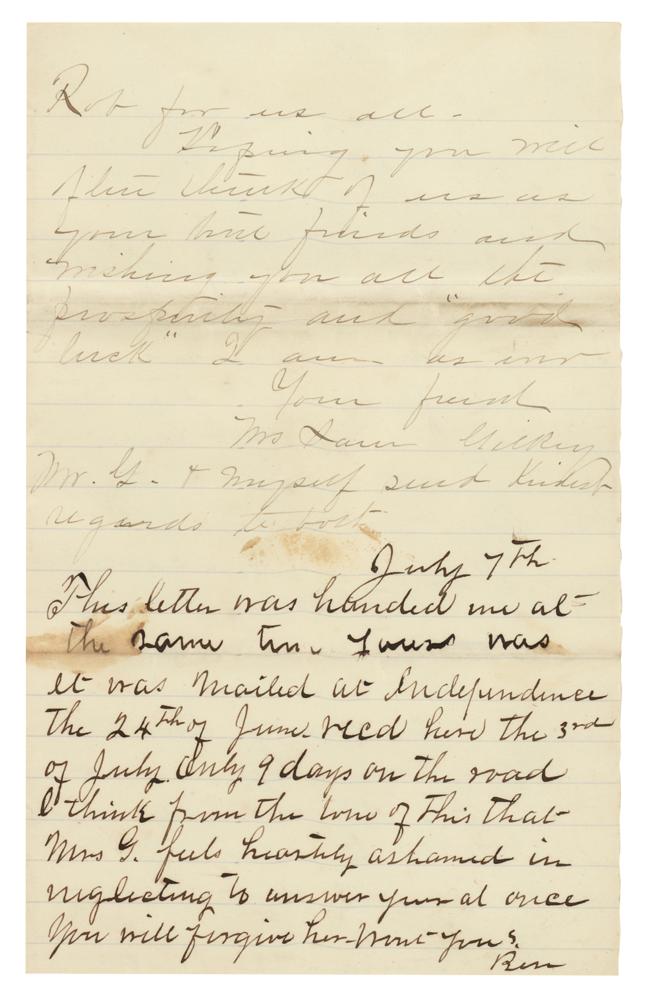 Rob for us all -
Hoping you will
often think of us as
your true friends and
wishing you all the
prosperity and "good
luck" I am as ever
Your friend
Mrs Sam Gilkey
Mr. G. & myself send kindest
regards to both
July 7th
This letter was handed me at
the same time yours was
it was mailed at Independence
the 24th of June recd here the 3rd
of July. Only 9 days on the road
I think from the tone of this that
Mrs G. feels heartily ashamed in
neglecting to answer your at once
You will forgive her wont you?
Ben